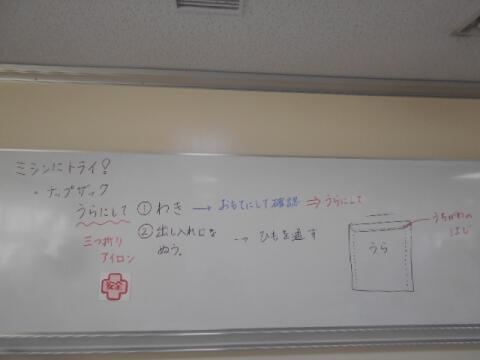 ミシンにトライ!
・ナップザック
うらにして ①わき → おもてにして確認 ⇒ うらにして
②出し入れ口を ぬう。 → ひもを通す
三つ折り
アイロン
安全
うら
うちがわの
はじ